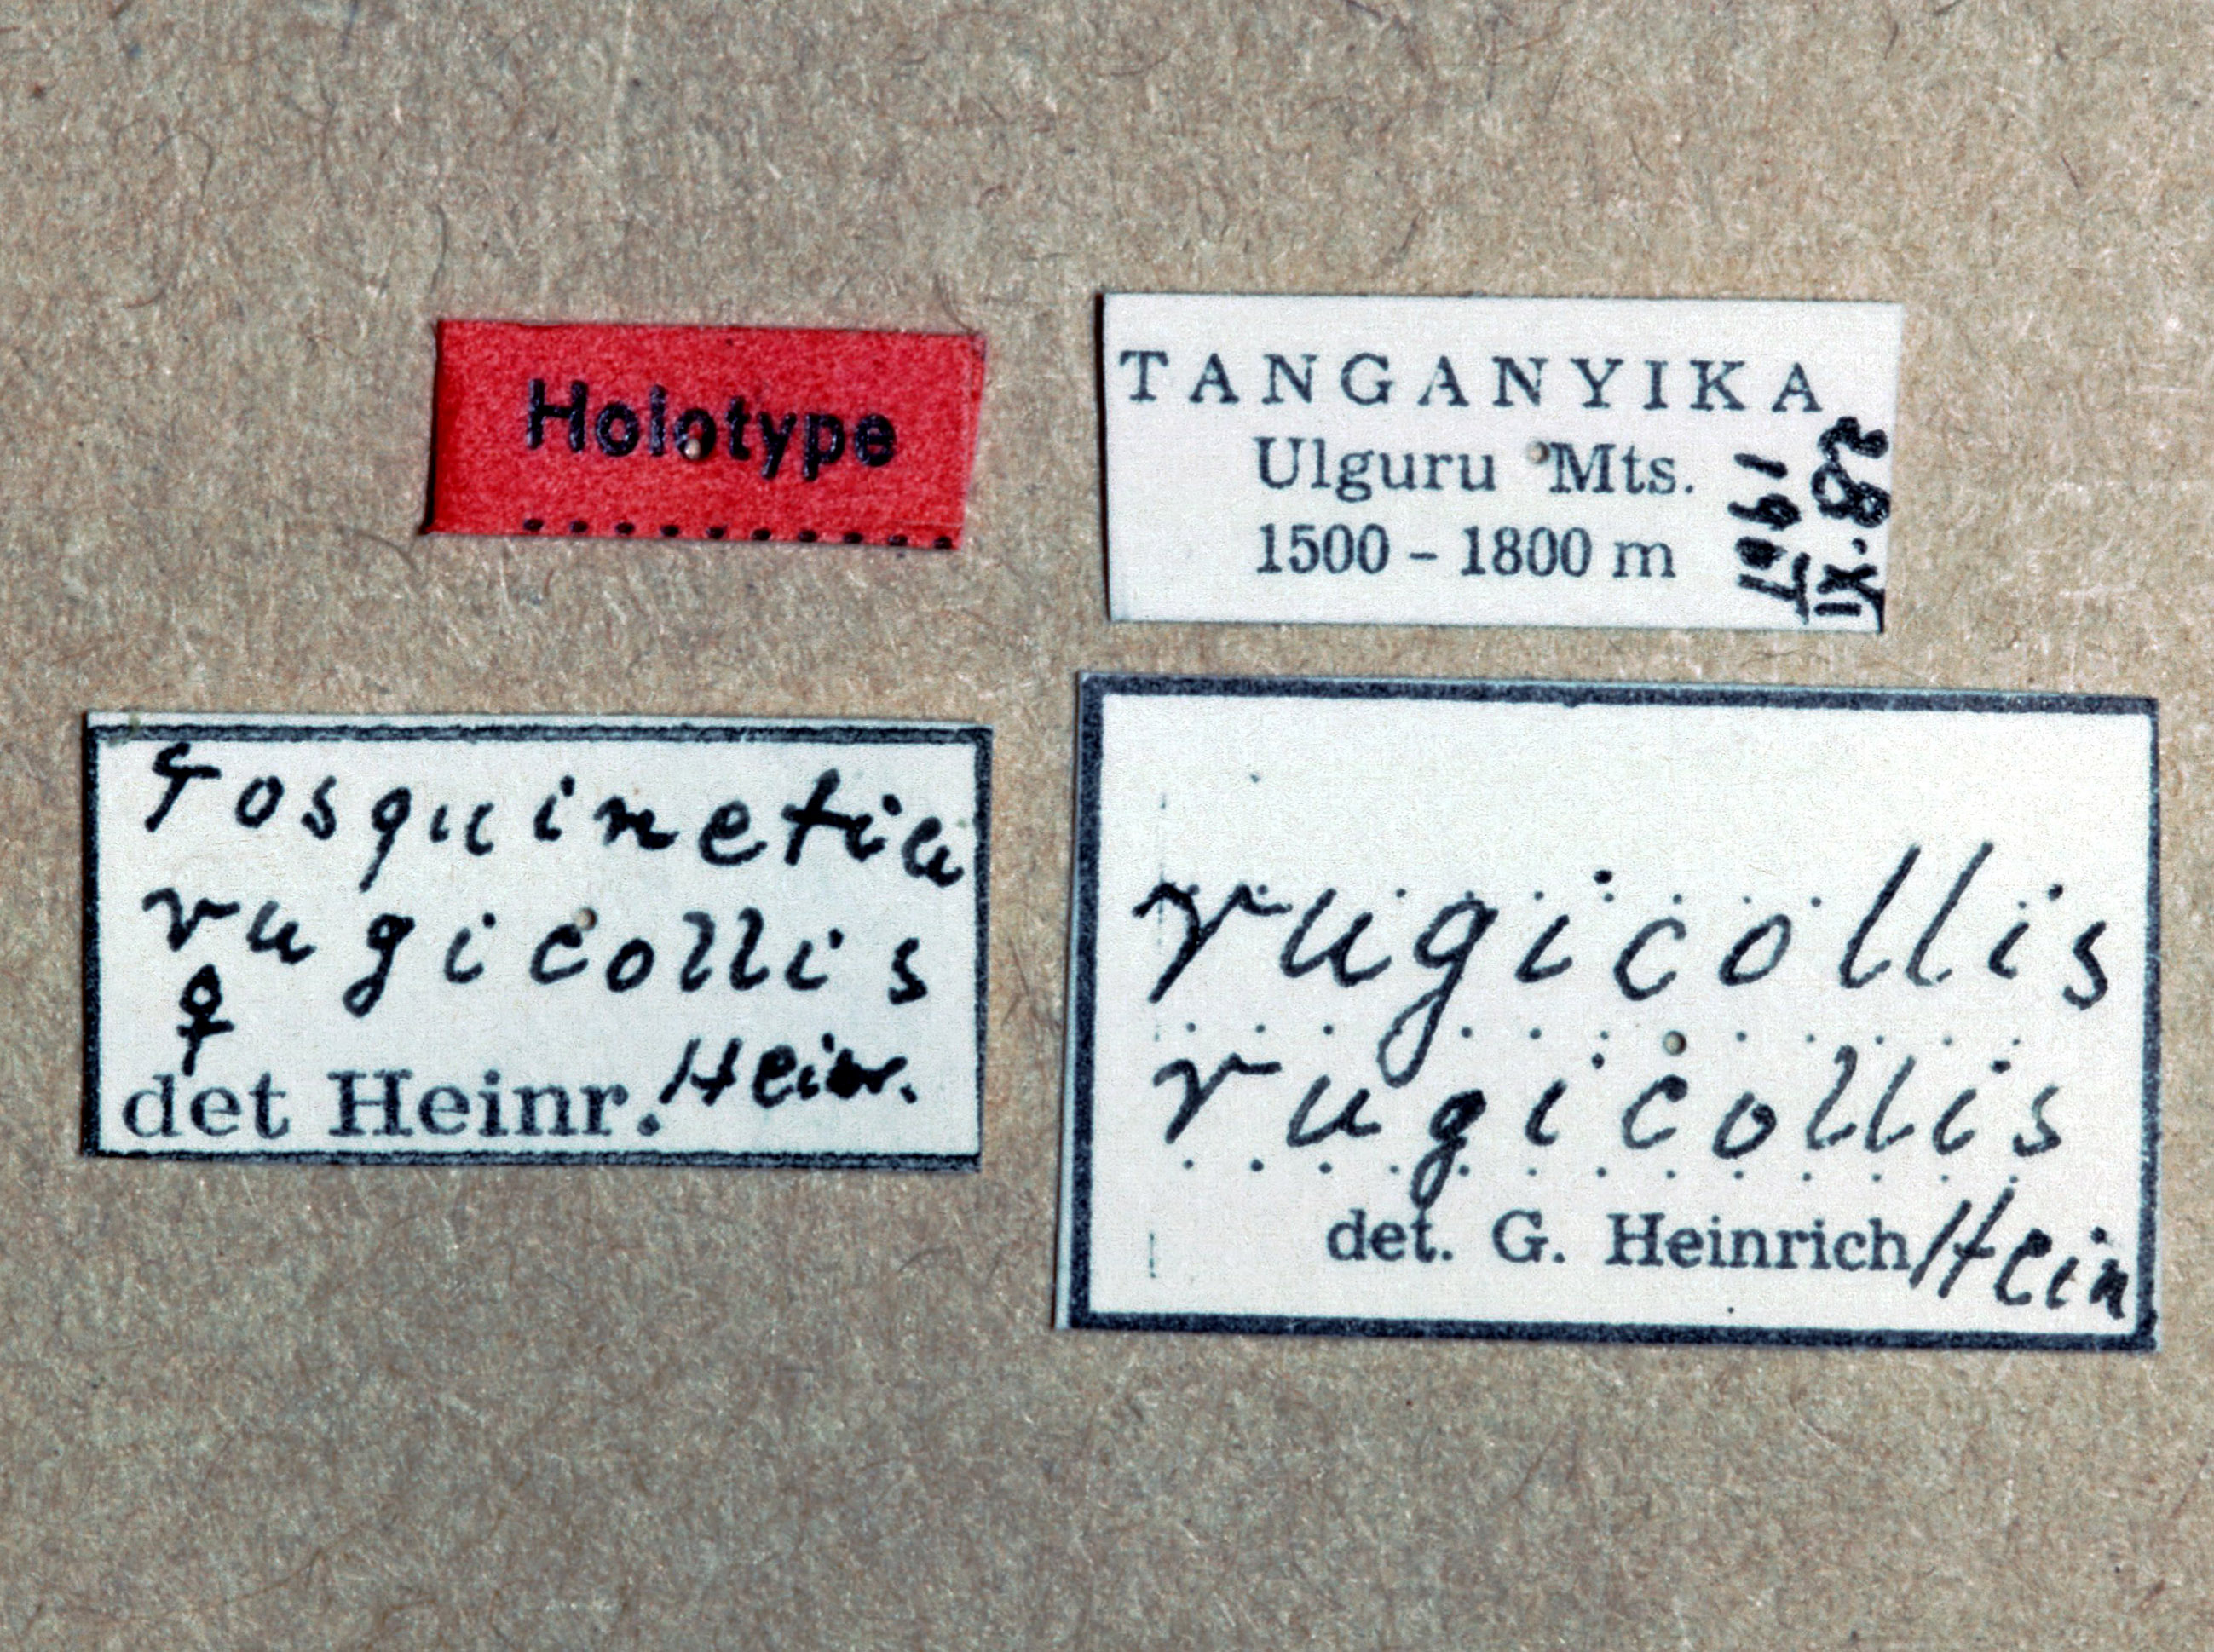 Holotype
TANGANYIKA
Ulguru Mts.
1500 - 1800 m
28. XI
Tosquinetia
rugicollis
♀
det Heinr. Heinr.
rugicollis
rugicollis
det. G. Heinrich Hein